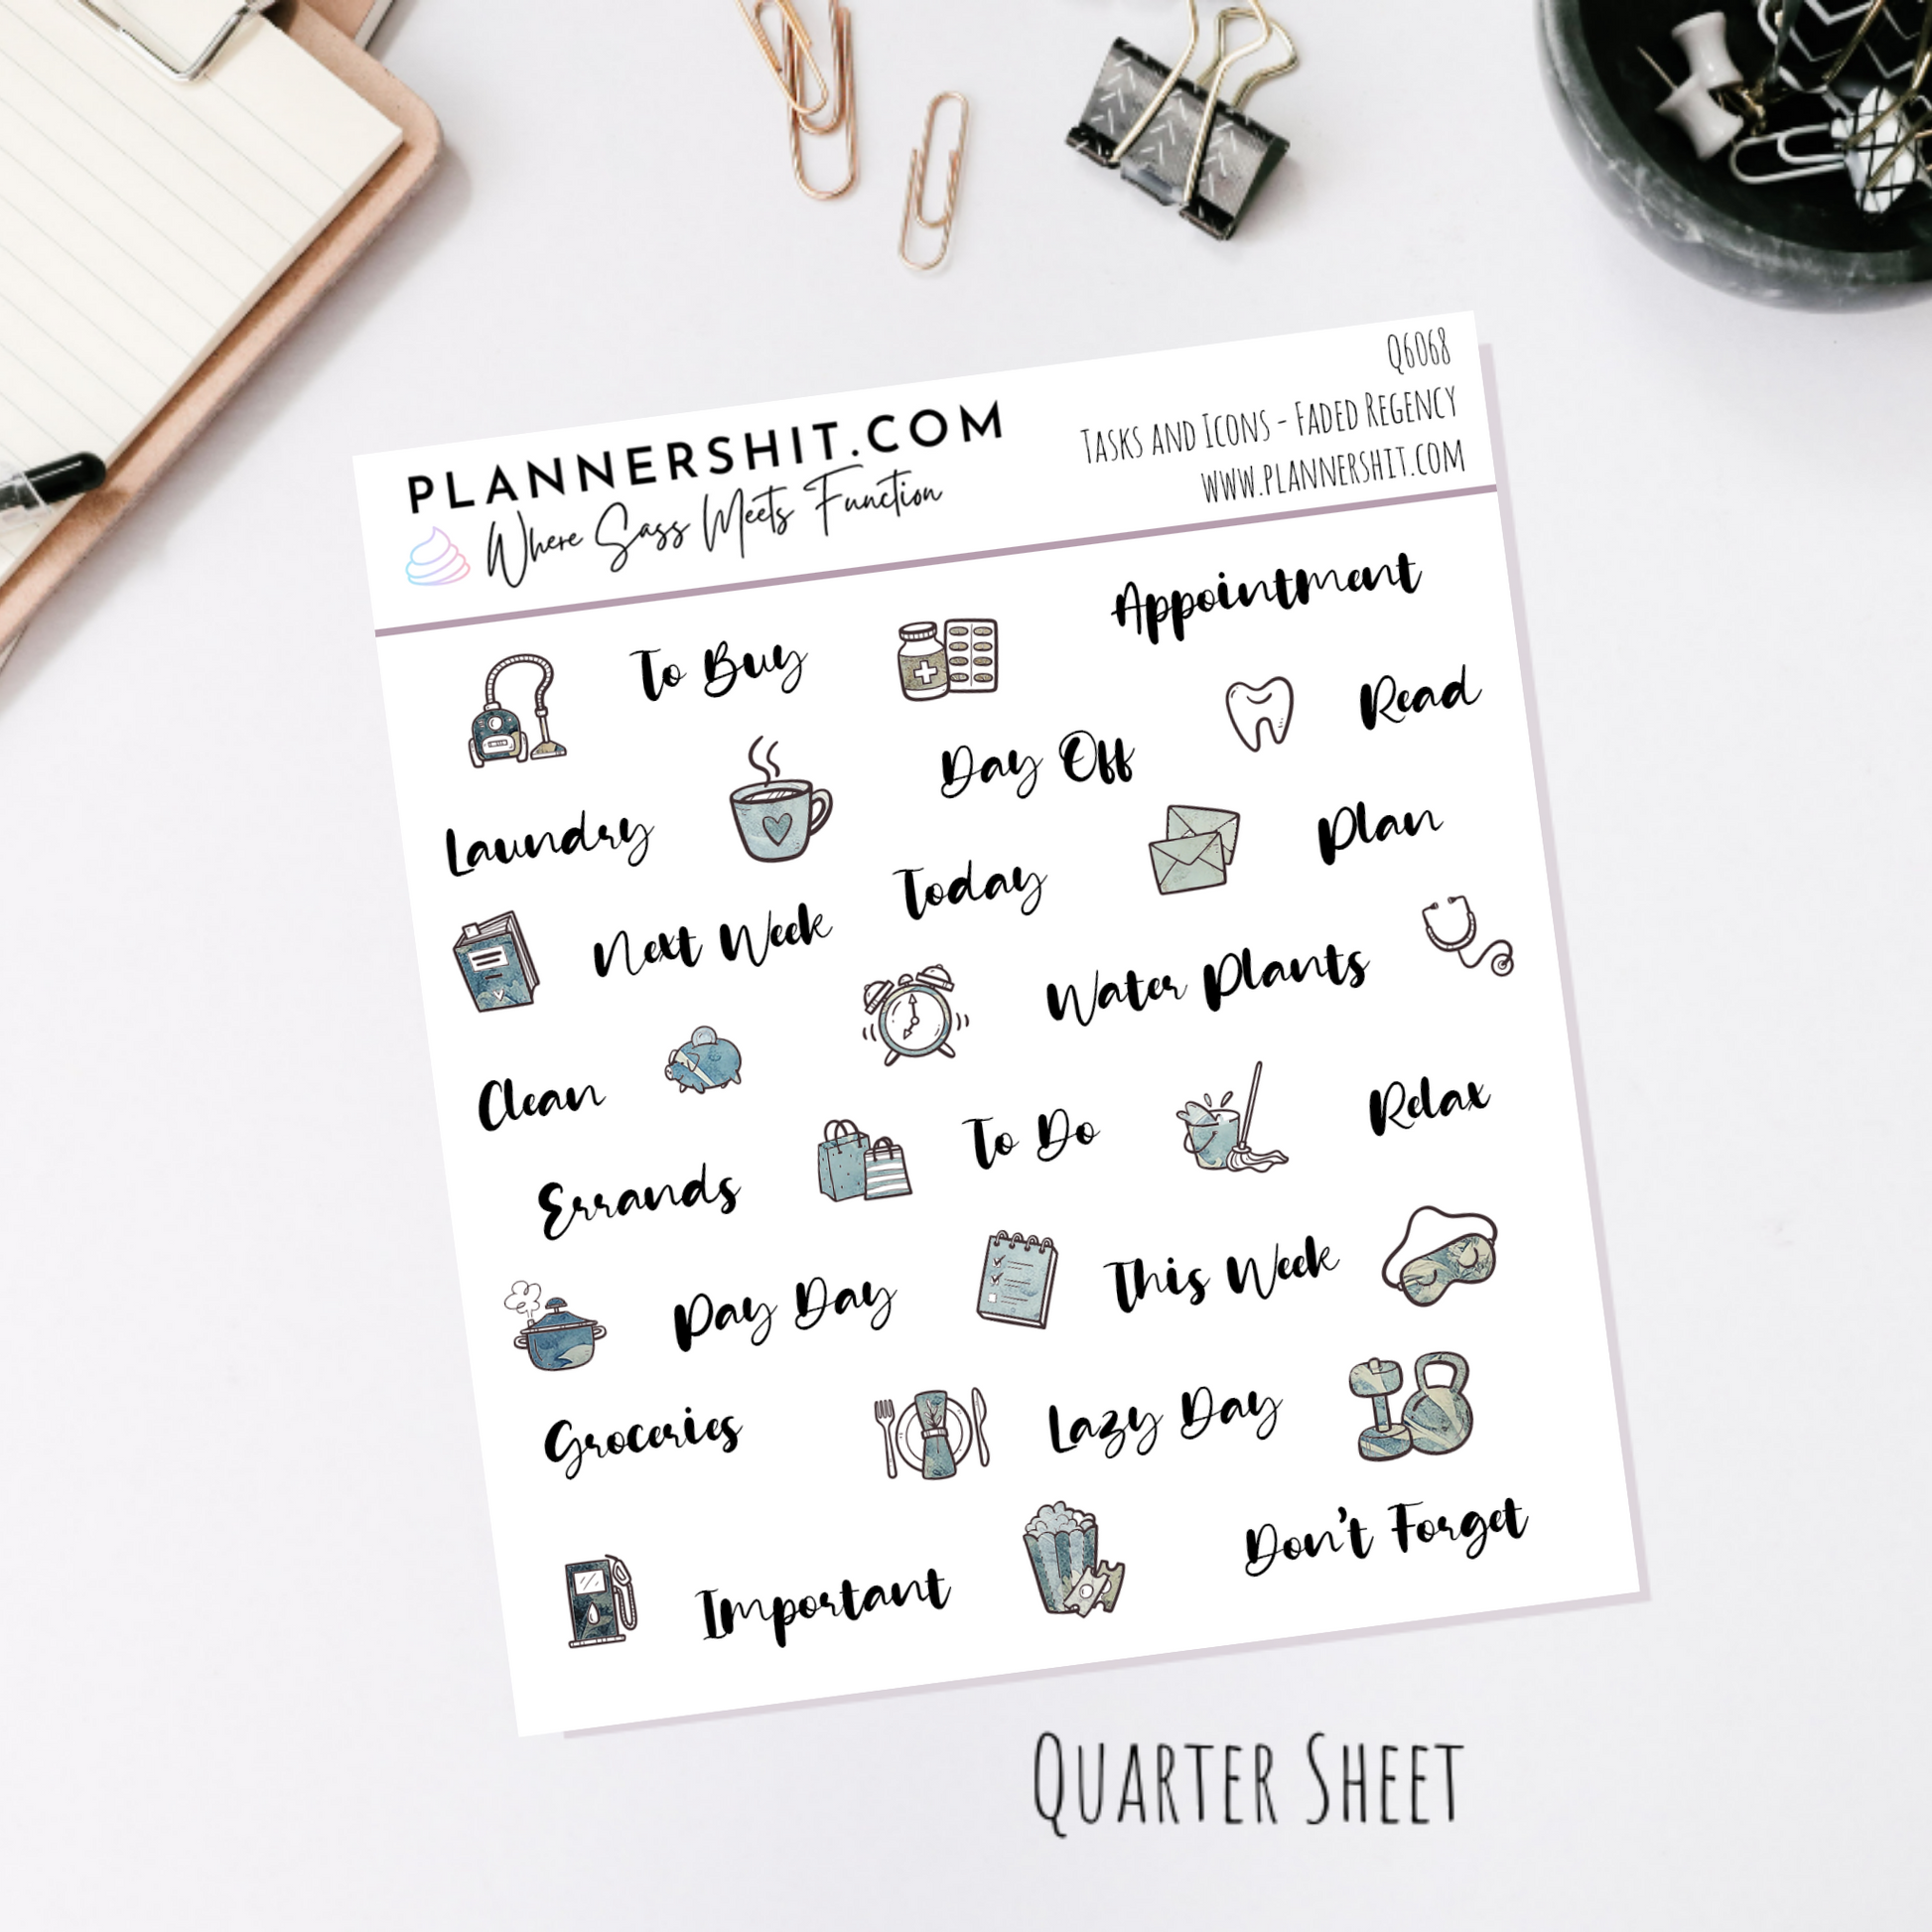 PLANNERSHIT.COM
Where Sass Meets Function
Q6068
Tasks and Icons - Faded Regency
www.plannershit.com
To Buy
Appointment
Read
Day Off
Laundry
Plan
Today
Next Week
Water Plants
Clean
To Do
Relax
Errands
This Week
Pay Day
Lazy Day
Groceries
Don't Forget
Important
Quarter Sheet